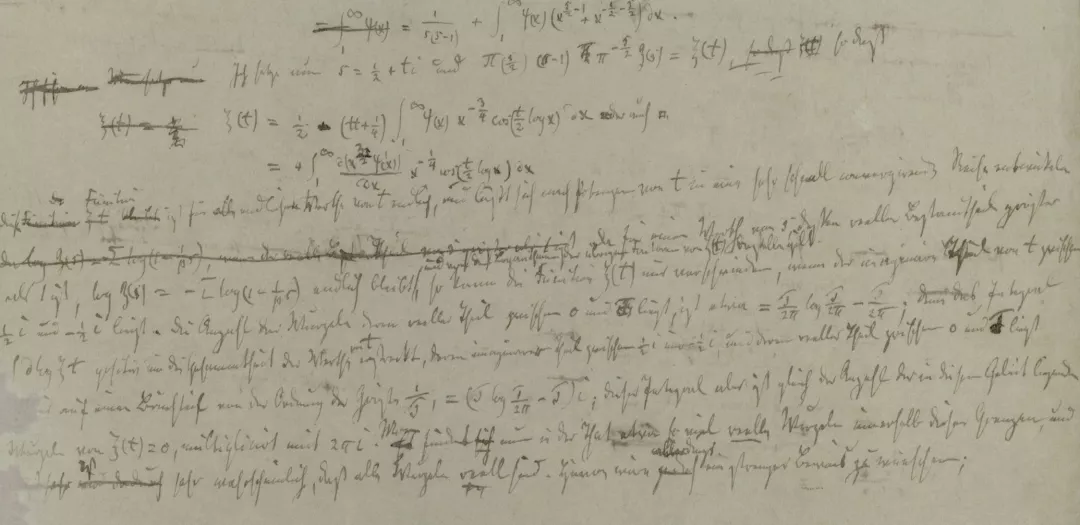 = ∫₁^∞ ψ(x) = 1/(s(s-1)) + ∫₁^∞ ψ(x) (x^{s/2-1} + x^{-s/2-1/2}) dx.
Ich setze nun s = 1/2 + ti und Π(s/2) (s-1) π^{-s/2} ζ(s) = ξ(t), so dass
ξ(t) = 1/2 - (tt+1/4) ∫₁^∞ ψ(x) x^{-3/4} cos(t/2 log x) dx oder auch
= 4 ∫₁^∞ d(x^{3/2} ψ'(x))/dx x^{-1/4} cos(t/2 log x) dx
Diese Function ist für alle endlichen Werthe von t endlich, und lässt sich nach Potenzen von t in eine sehr schnell convergirende Reihe entwickeln
Da für einen Werth von s, dessen reeller Bestandtheil grösser
als 1 ist, log ζ(s) = -Σ log(1-p^{-s}) endlich bleibt, so kann die Function ξ(t) nur verschwinden, wenn der imaginäre Theil von t zwischen
1/2 i und -1/2 i liegt. Die Anzahl der Wurzeln deren reeller Theil zwischen 0 und T liegt, ist etwa = T/2π log T/2π - T/2π; denn das Integral
∫ d log ξ t positiv um den Werthe von t erstreckt, deren imaginärer Theil zwischen 1/2 i und -1/2 i, und deren reeller Theil zwischen 0 und T liegt
ist auf einen Bruchtheil von der Ordnung der Grösse 1/T, = (T log T/2π - T) i; dieses Integral aber ist gleich der Anzahl der in diesem Gebiet liegenden
Wurzeln von ξ(t) = 0, multiplicirt mit 2πi. Man findet nun in der That etwa so viel reelle Wurzeln innerhalb dieser Grenzen, und
es ist sehr wahrscheinlich, dass alle Wurzeln reell sind. Hiervon wäre allerdings ein strenger Beweis zu wünschen;